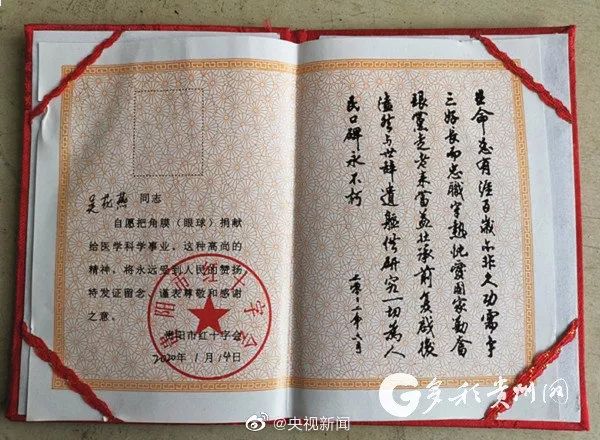 吴花燕 同志
自愿把角膜（眼球）捐献
给医学科学事业。这种高尚的
精神，将永远受到人民的赞扬
特发证留念、谨表尊敬和感谢
之意。
贵阳市红十字会
2020年1月14日
贵阳市红十字会
生命总有涯百岁亦非久幼需学
三好长而忠职守热忱爱国家勤奋
跟党走老来当益壮承前复启後
溘然与世辞遗躯供研究一切为人
民口碑永不朽
@央视新闻
多彩贵州网